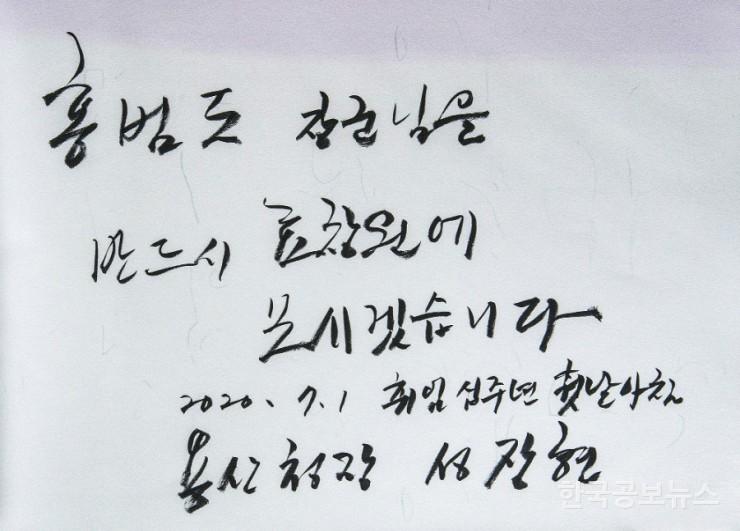 홍범도 장군님을
반드시 효창원에
모시겠습니다
2020. 7. 1 취임 십주년 첫날 아침
용산 청장 성장현
한국공보뉴스